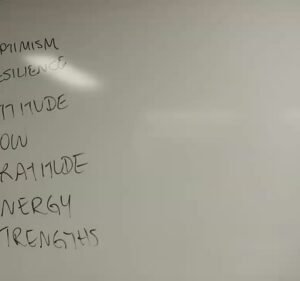 PTIMISM
ESILIENCE
TTITUDE
OW
RATITUDE
NERGY
TRENGTHS